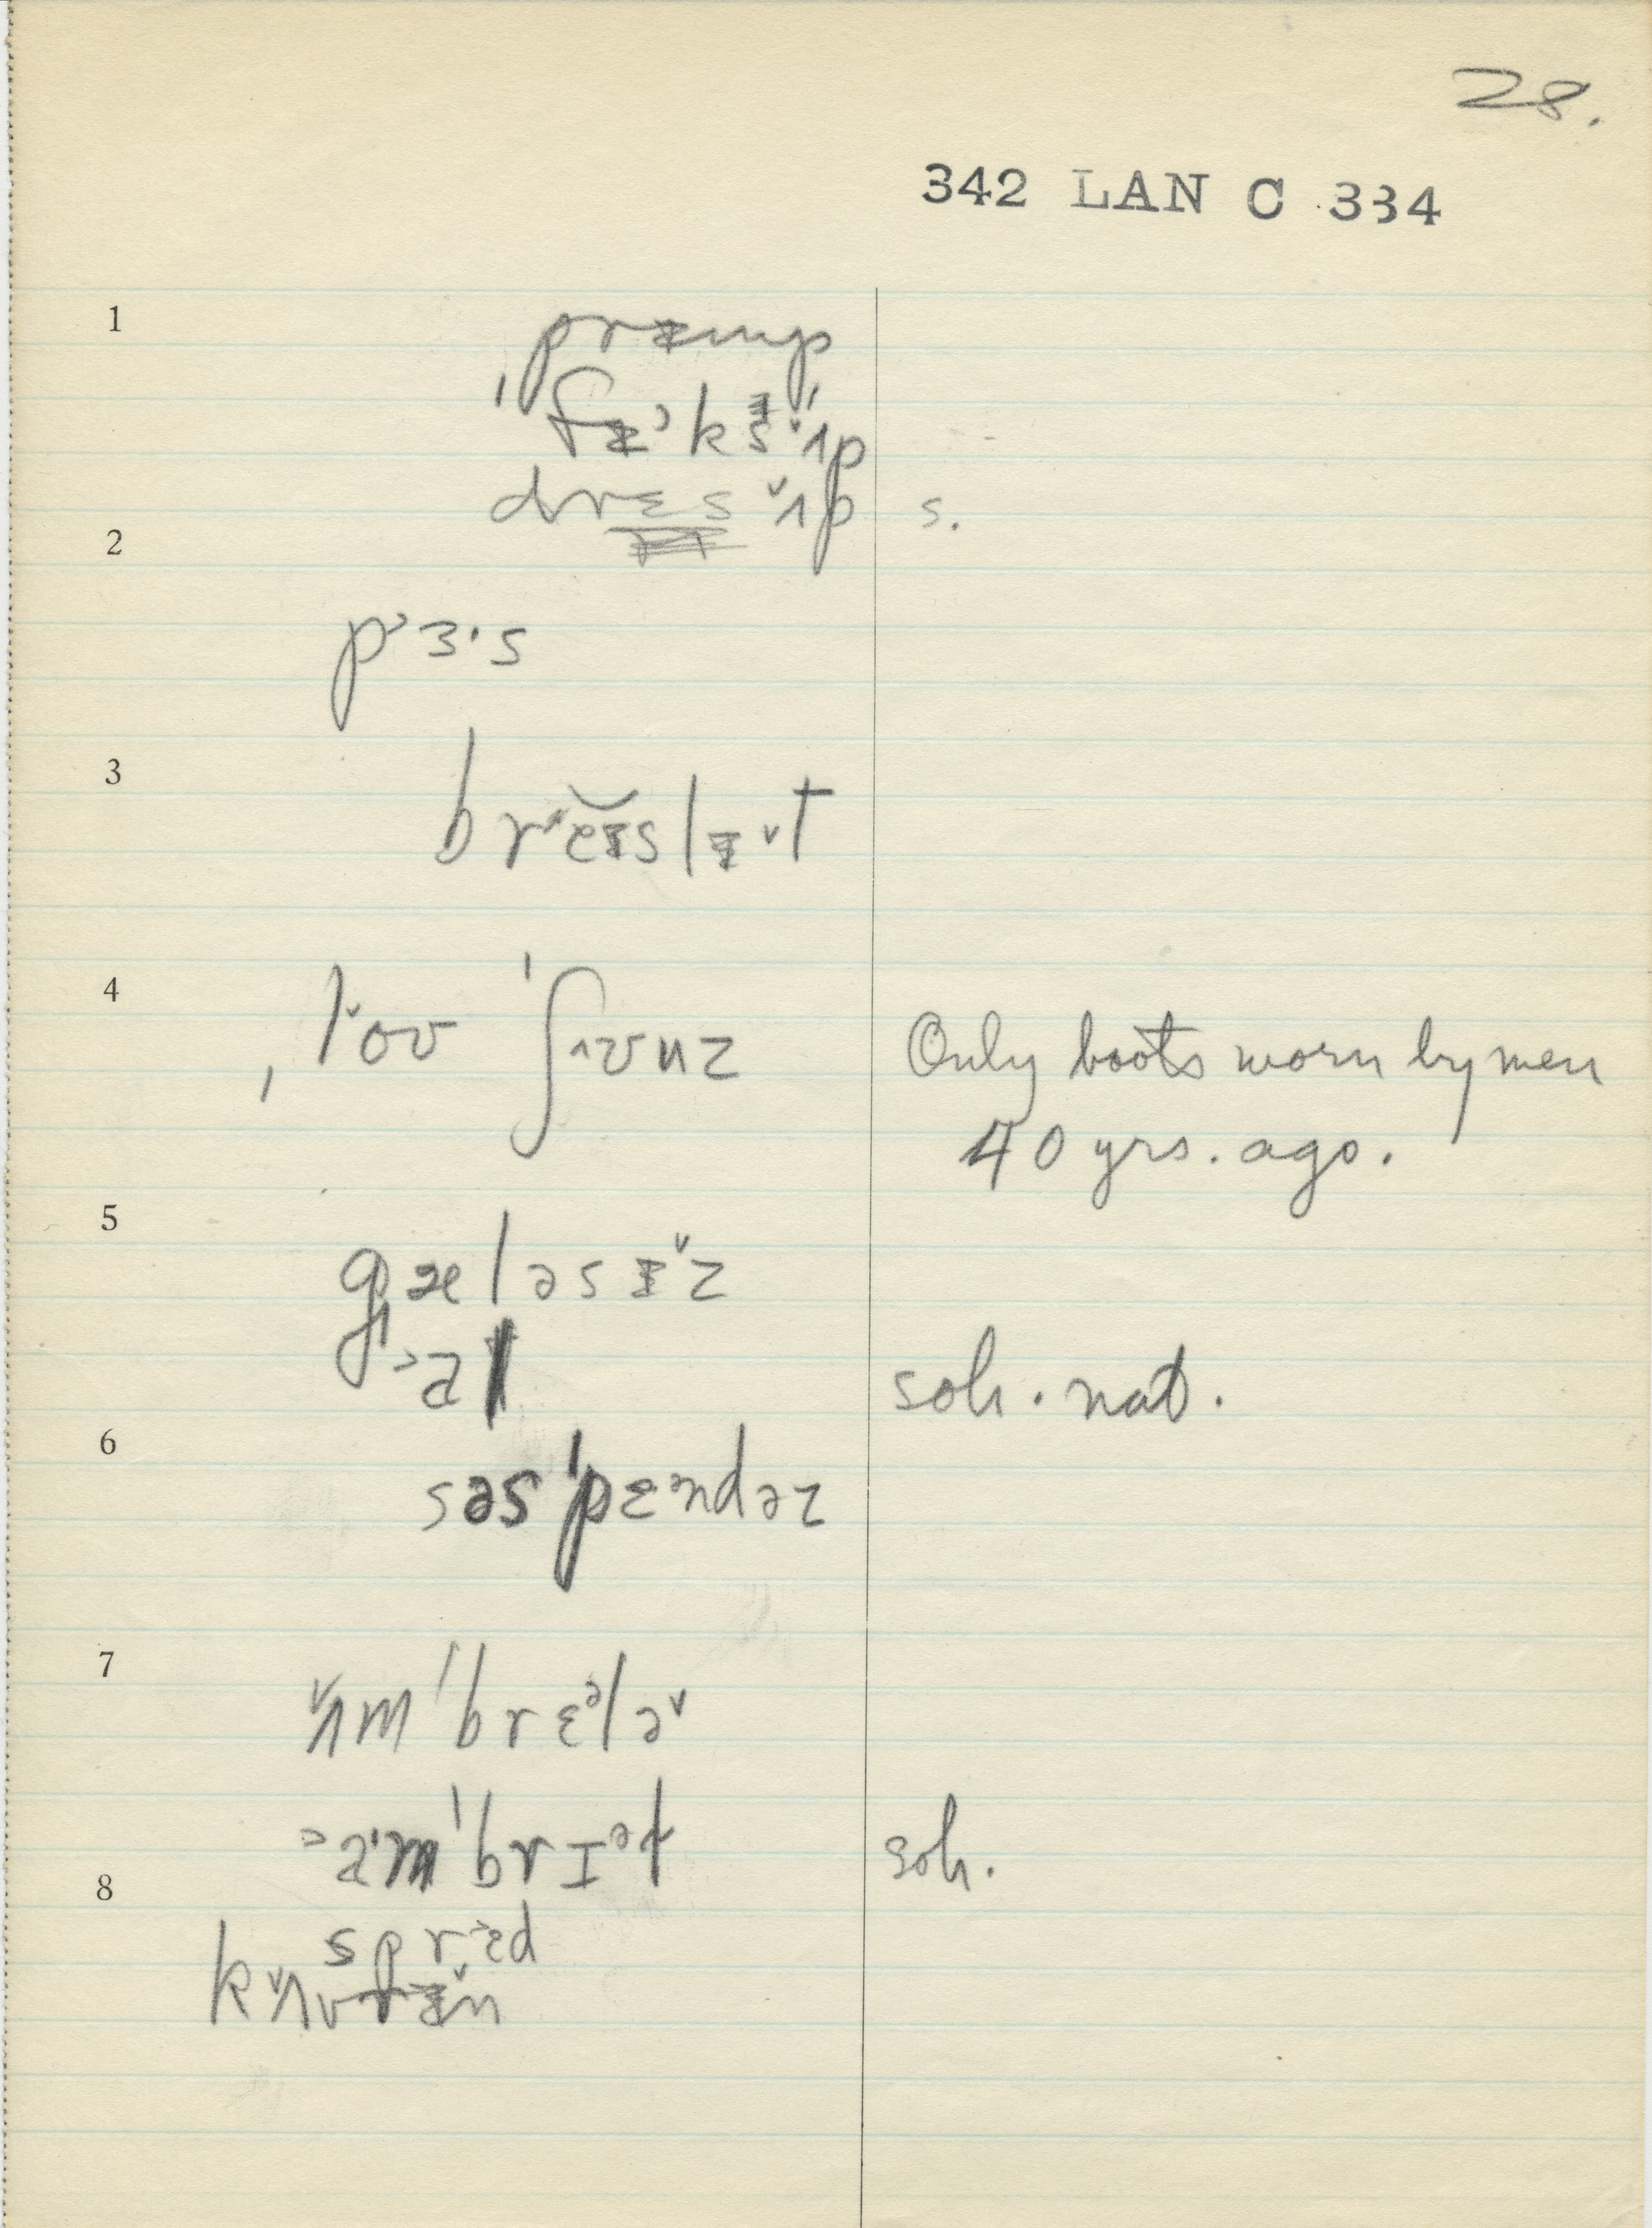 28.
342 LAN C 334
1
præmp
ˌfɪ˒ks ˈʌ˅p
drɛs ʌ˅p s.
2
p˒ɜ·s
3
breɪslɪ˅t
4
ˌlo˅ʊ ˈʃʉunz Only boots worn by men
40 yrs. ago.
5
gæləsɪ˅z
g˒al soh. nat.
6
səsˈpɛᵊndəz
7
ʌ˅mˈbrɛᵊlə˅
˒amˈbrɪᵊl soh.
8
spr˒ɛd
kʌ˅vrɪ˅n